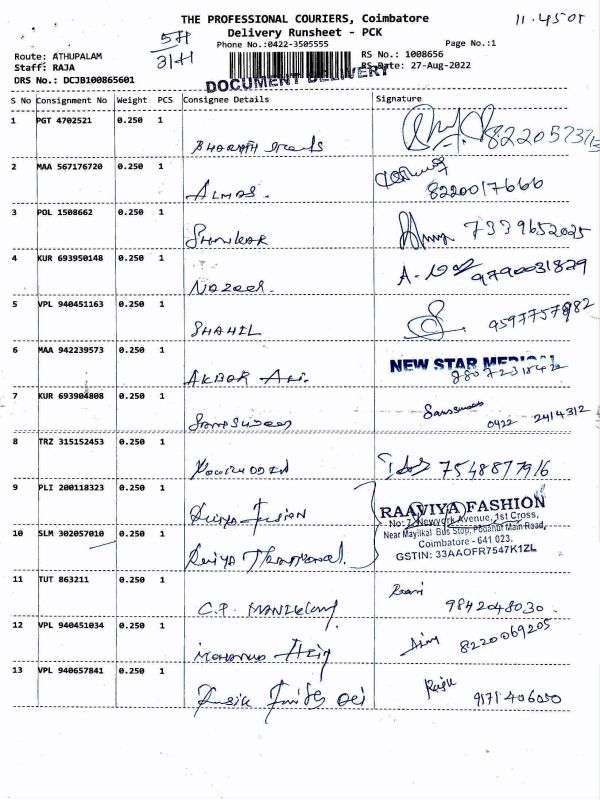 THE PROFESSIONAL COURIERS, Coimbatore
11.45
Delivery Runsheet - PCK
Phone No.:0422-3505555
Page No.:1
Route: ATHUPALAM
RS No.: 1008656
Staff: RAJA
RS Date: 27-Aug-2022
DRS No.: DCJB100865601
DOCUMENT DELIVERY
S No Consignment No Weight PCS Consignee Details Signature
1 PGT 4702521 0.250 1
2 MAA 567176720 0.250 1 ALMAS. 8220017666
3 POL 1508662 0.250 1 SHANKAR 7339652025
4 KUR 693950148 0.250 1 Nazeer. 9790031829
5 VPL 940451163 0.250 1 SHAHIL
6 MAA 942239573 0.250 1 AKBAR ALI. NEW STAR MEDICAL
7 KUR 693904808 0.250 1 0422 - 2414312
8 TRZ 315152453 0.250 1 7548877916
9 PLI 200118323 0.250 1 Fusion
RAAVIYA FASHION
No: 7, Newyork Avenue, 1st Cross,
Near Mayilkal Bus Stop, Podanur Main Road,
10 SLM 302057010 0.250 1
Coimbatore - 641 023.
GSTIN: 33AAOFR7547K1ZL
11 TUT 863211 0.250 1 C.P. 9842048030.
12 VPL 940451034 0.250 1 8220069205
13 VPL 940657841 0.250 1 Raju 9171406050